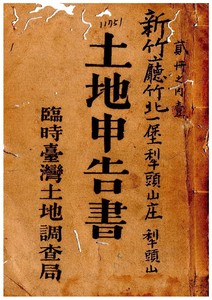 11751
貳冊之內壹
新竹廳竹北一堡犁頭山庄犁頭山
土地申告書
臨時臺灣土地調查局